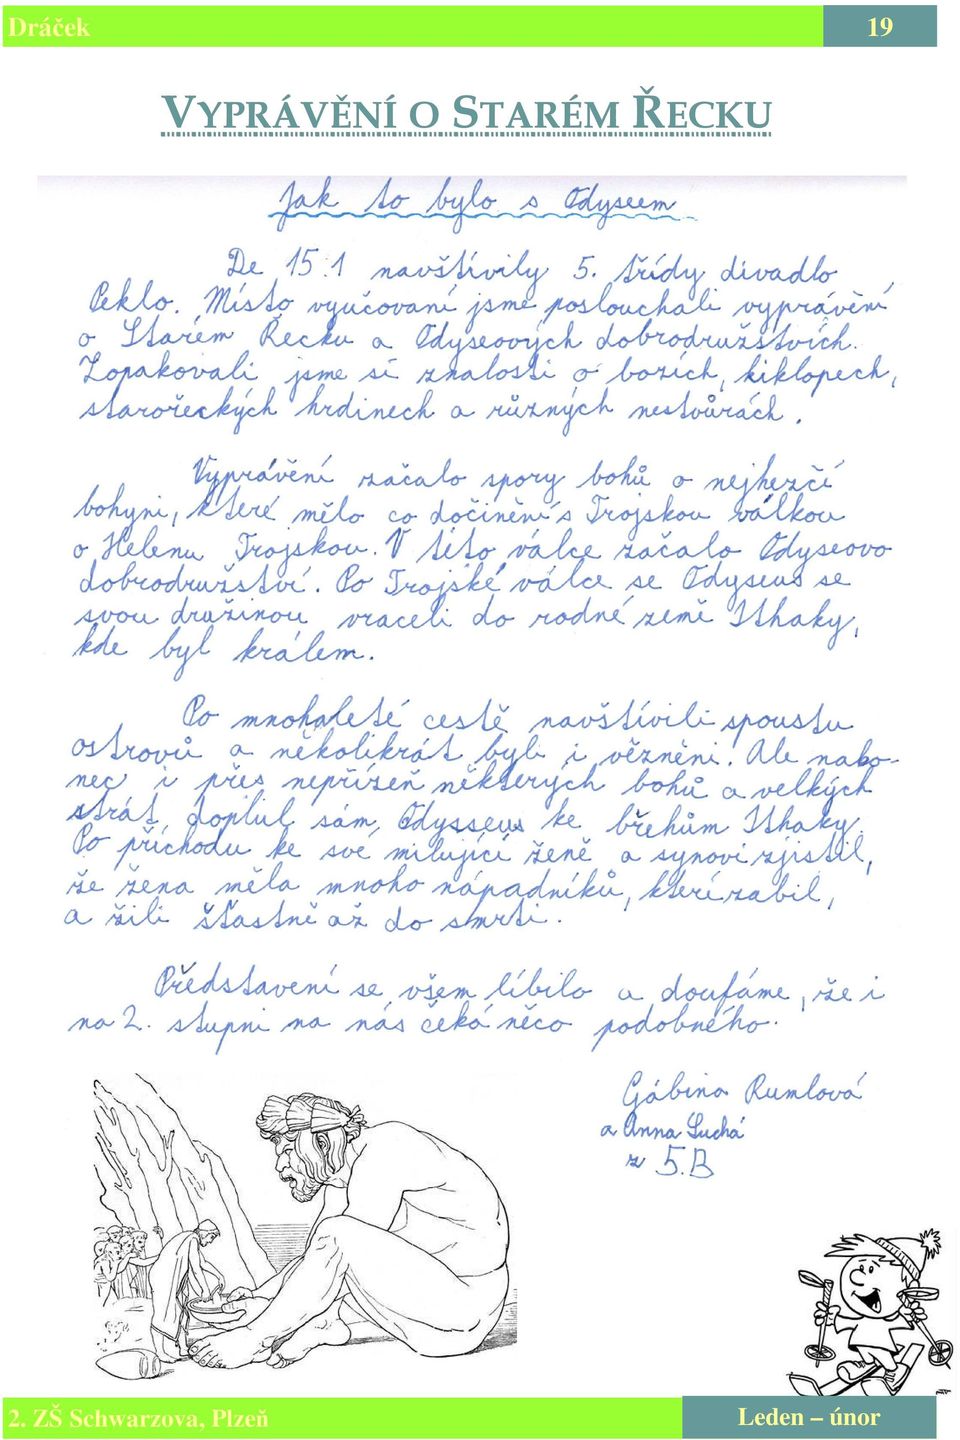 Dráček 19
VYPRÁVĚNÍ O STARÉM ŘECKU
Jak to bylo s Odyseem
De 15.1 navštívily 5. třídy divadlo
Peklo. Místo vyučovaní jsme poslouchali vyprávění
o Starém Řecku a Odyseových dobrodružstvích.
Zopakovali jsme si znalosti o bozích, kiklopech,
starořeckých hrdinech a různých nestvůrách.
Vyprávění začalo spory bohů o nejhezčí
bohyni, které mělo co dočinění s Trojskou válkou
o Helenu Trojskou. V této válce začalo Odyseovo
dobrodružství. Po Trojské válce se Odyseus se
svou družinou vraceli do rodné země Ithaky,
kde byl králem.
Po mnohaleté cestě navštívili spoustu
ostrovů a několikrát byli i vězněni. Ale nako-
nec i přes nepřízeň některých bohů a velkých
strát doplul sám Odysseus ke břehům Ithaky.
Po příchodu ke své milující ženě a synovi zjistil,
že žena měla mnoho nápadníků, kterí zabil,
a žili šťastně až do smrti.
Představení se všem líbilo a doufáme, že i
na 2. stupni na nás čeká něco podobného.
Gábina Rumlová
a Anna Suchá
z 5.B
2. ZŠ Schwarzova, Plzeň Leden – únor